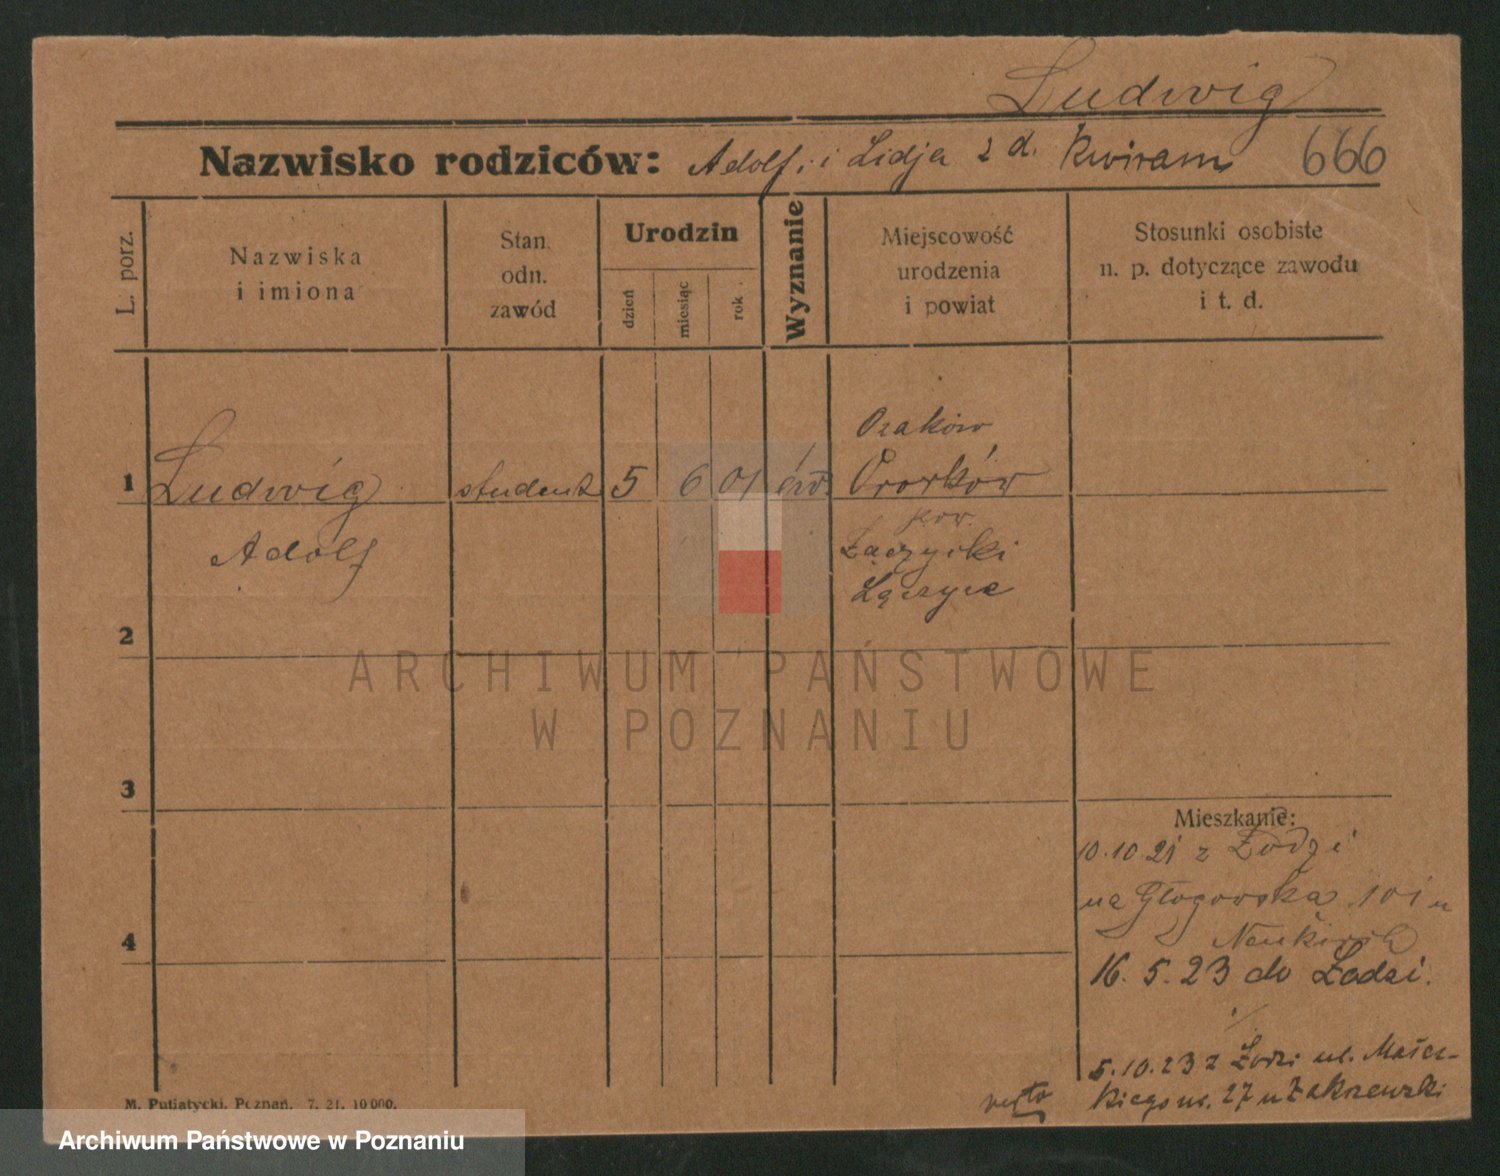 Ludwig
Nazwisko rodziców: Adolf i Lidja z d. Kwiram 666
L. porz.
Nazwiska
i imiona
Stan.
odn.
zawód
Urodzin
dzień
miesiąc
rok
Wyznanie
Miejscowość
urodzenia
i powiat
Stosunki osobiste
n. p. dotyczące zawodu
i t. d.
Ozaków
1 Ludwig student 5 6 01 Ozorków
pow.
Adolf Łączycki
Łączyca
2
3
4
Mieszkanie:
10.10 21 z Łodzi
na Głogowska 101 u
Neukirch
16. 5. 23 do Łodzi.
5.10.23 z Łodzi ul. Małec-
kiego nr. 27 u Zakrzewski
verto
M. Putiatycki, Poznań, 7. 21. 10 000.
ARCHIWUM PAŃSTWOWE
W POZNANIU
Archiwum Państwowe w Poznaniu